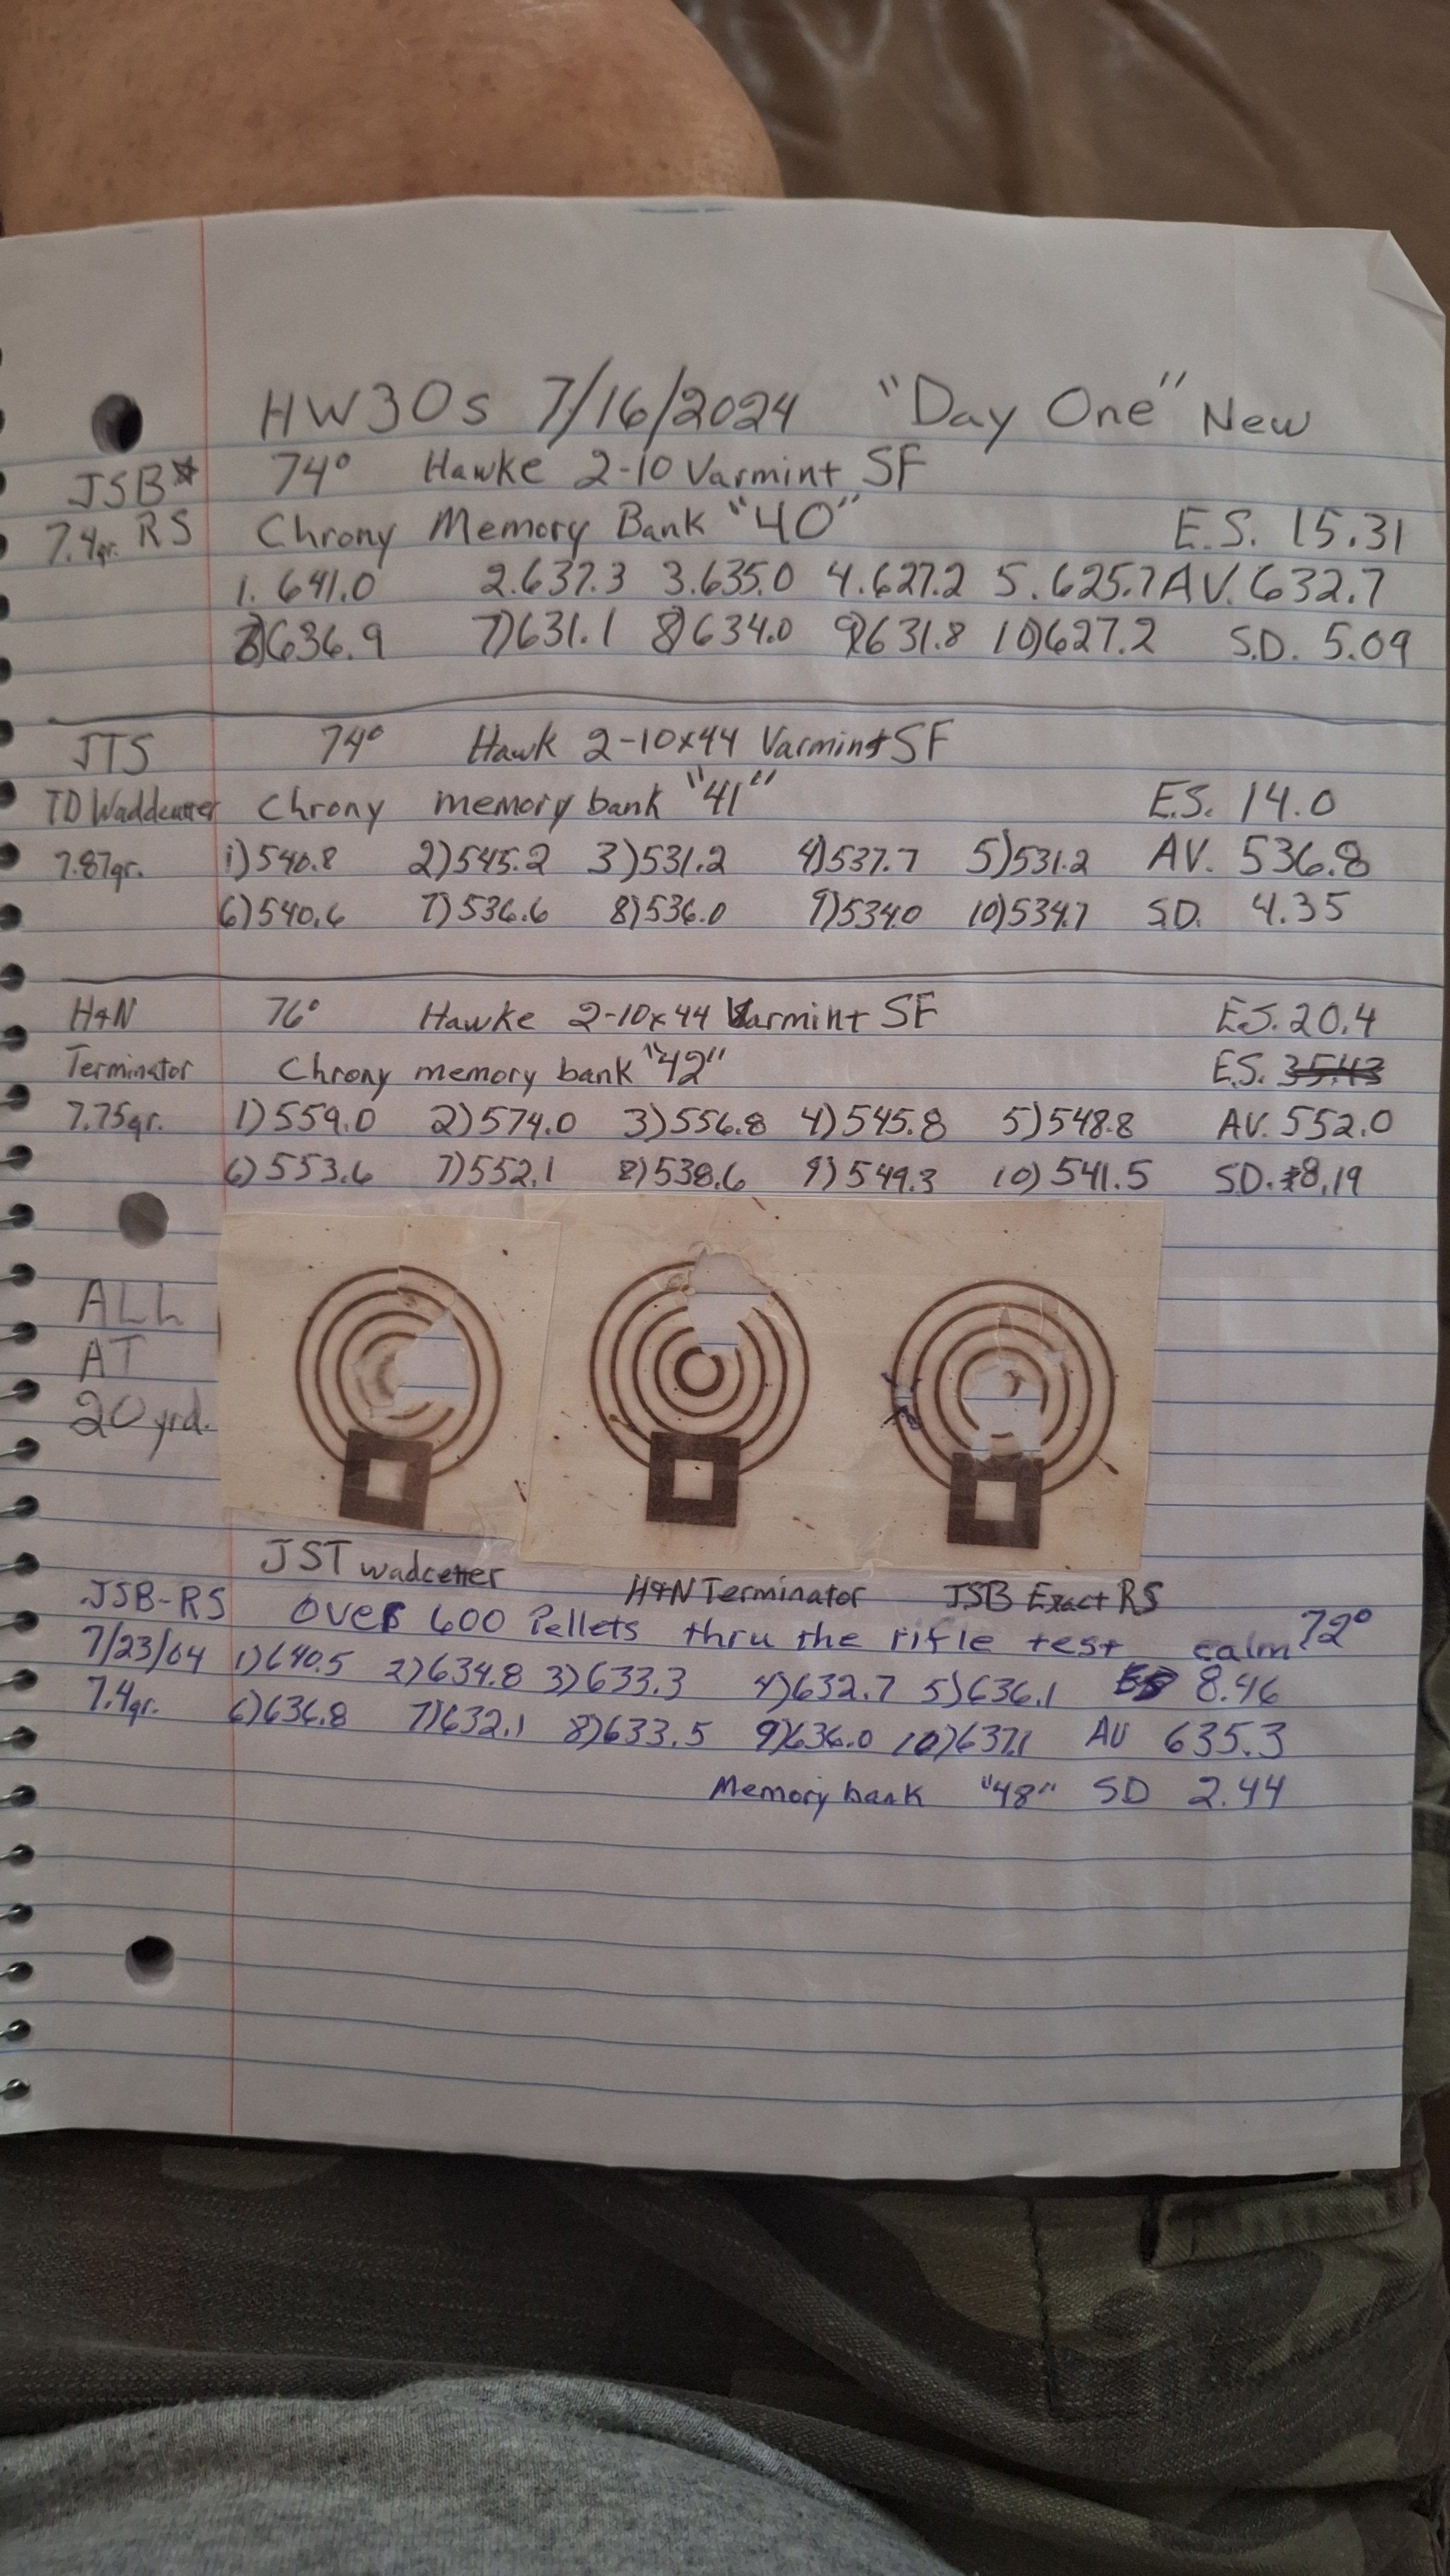 HW30s 7/16/2024 "Day One" New
JSB* 74° Hawke 2-10 Varmint SF
7.4gr. RS Chrony Memory Bank "40" E.S. 15.31
1. 641.0 2. 637.3 3. 635.0 4. 627.2 5. 625.7 AV. 632.7
6)636.9 7)631.1 8)634.0 9)631.8 10)627.2 S.D. 5.09
JTS 74° Hawk 2-10x44 Varmint SF
TD Waddcutter Chrony memory bank "41" E.S. 14.0
7.87gr. 1)540.8 2)545.2 3)531.2 4)537.7 5)531.2 AV. 536.8
6)540.6 7)536.6 8)536.0 9)534.0 10)534.7 S.D. 4.35
H&N 76° Hawke 2-10x44 Varmint SF E.S. 20.4
Terminator Chrony memory bank "42" E.S. 35.43
7.75gr. 1)559.0 2)574.0 3)556.8 4)545.8 5)548.8 AV. 552.0
6)553.6 7)552.1 8)538.6 9)549.3 10)541.5 SD. 8.19
ALL
AT
20 yrd.
JST wadcetter H&N Terminator JSB Exact RS
JSB-RS Over 600 Pellets thru the rifle test calm 72°
7/23/04 1)640.5 2)634.8 3)633.3 4)632.7 5)636.1 ES 8.46
7.4gr. 6)636.8 7)632.1 8)633.5 9)636.0 10)637.1 AV 635.3
Memory bank "48" SD 2.44